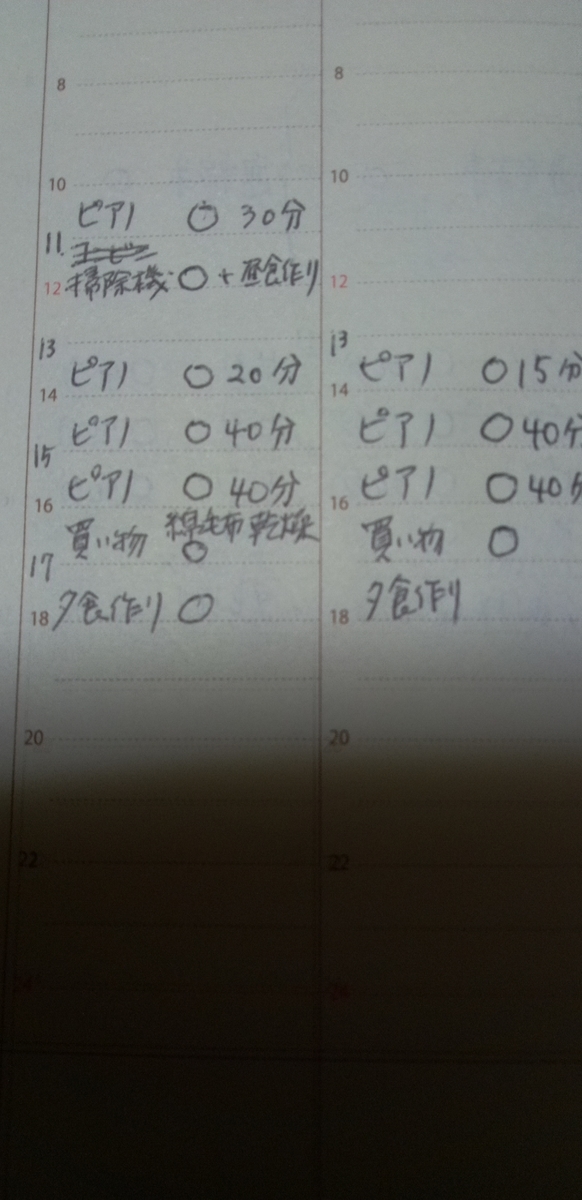 8
10
ピアノ ○ 30分
11
12 掃除機 ○ + 昼食作り
13
ピアノ ○ 20分
14
ピアノ ○ 40分
15
ピアノ ○ 40分
16
買い物 ○ 綿毛布乾燥
17
18 夕食作り ○
20
22
8
10
12
13
ピアノ ○ 15分
14
ピアノ ○ 40分
ピアノ ○ 40分
16
買い物 ○
18 夕食作り
20
22
24